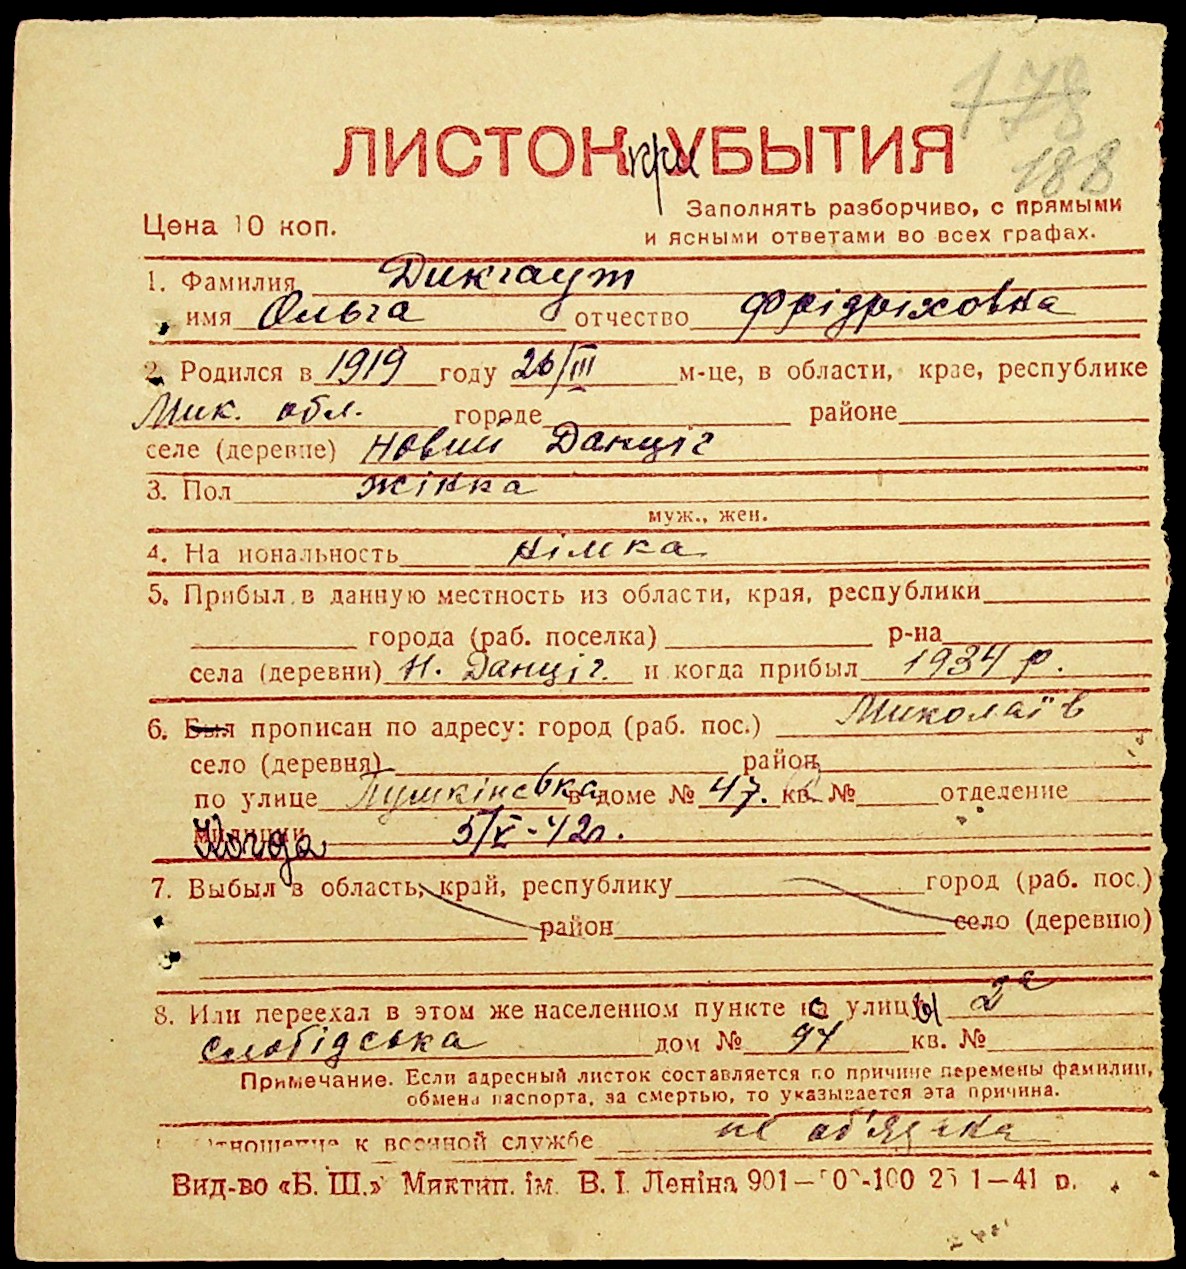 178
188
ЛИСТОК при УБЫТИЯ
Цена 10 коп.
Заполнять разборчиво, с прямыми
и ясными ответами во всех графах.
1. Фамилия Дикгаут
имя Ольга отчество Фрідріховна
2. Родился в 1919 году 26/III м-це, в области, крае, республике
Мик. обл. городе районе
селе (деревне) Новий Данціг
3. Пол жінка
муж., жен.
4. На иональность німка
5. Прибыл в данную местность из области, края, республики
города (раб. поселка) р-на
села (деревни) Н. Данціг. и когда прибыл 1934 р.
6. Был прописан по адресу: город (раб. пос.) Миколаїв
село (деревня) район
по улице Пушкінська в доме № 47. кв. № отделение
милиции Когда 5/V-42р.
7. Выбыл в область, край, республику город (раб. пос.)
район село (деревню)
8. Или переехал в этом же населенном пункте с улицы 2а
слобідська дом № 94 кв. №
Примечание. Если адресный листок составляется по причине перемены фамилии,
обмена паспорта, за смертью, то указывается эта причина.
Отношение к военной службе не об'язана
Вид-во «Б. Ш.» Миктип. ім. В. І. Леніна 901 1—41 р.